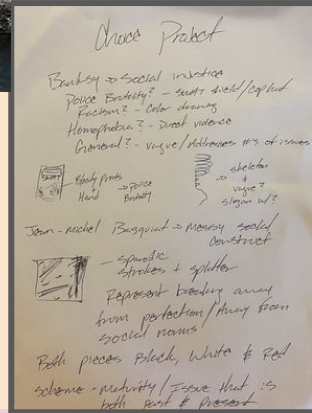 Choice Project
Banksy → Social injustice
Police Brutality? - SWAT shield/Cop hat
Racism? - Color drawing
Homophobia? - Direct violence
General? - vague/Addresses #'s of issues
Bloody Prints
Hand → Police
Brutality
skeleton
+
vague?
slogan w/?
Jean-michel Basquiat → Messy social
construct
sporadic
strokes + splatter
Represent breaking away
from perfection/Away from
social norms
Both pieces Black, White & Red
scheme - maturity/Issue that is
both Past & Present